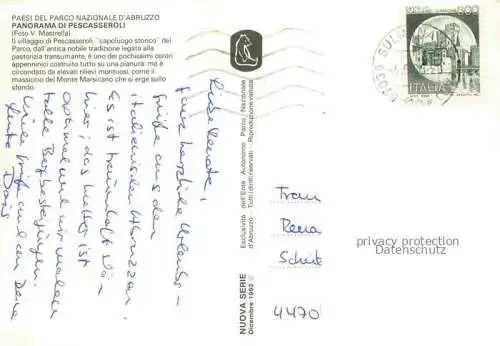 PAESI DEL PARCO NAZIONALE D'ABRUZZO
PANORAMA DI PESCASSEROLI
(Foto V. Mastrella)
Il villaggio di Pescasseroli, "capoluogo storico" del
Parco, dall'antica nobile tradizione legata alla
pastorizia transumante, è uno dei pochissimi centri
appenninici costruito tutto su una pianura: ma è
circondato da elevati rilievi montuosi, come il
massiccio del Monte Marsicano che si erge sullo
sfondo.
Liebe Renate,
ganz herzliche Urlaubs-
grüße aus den
italienischen Abruzzen.
Es ist traumhaft schön
hier, das Wetter ist
optimal und wir machen
tolle Bergbesteigungen.
Liebe Grüße und an Deine
Leute Doris
NUOVA SERIE
Dicembre 1992
Esclusività dell'Ente Autonomo Parco Nazionale
d'Abruzzo Tutti i diritti riservati Riproduzione vietata
67039 SUL
ITALIA
Frau
Rena
Schit
4470
privacy protection
Datenschutz